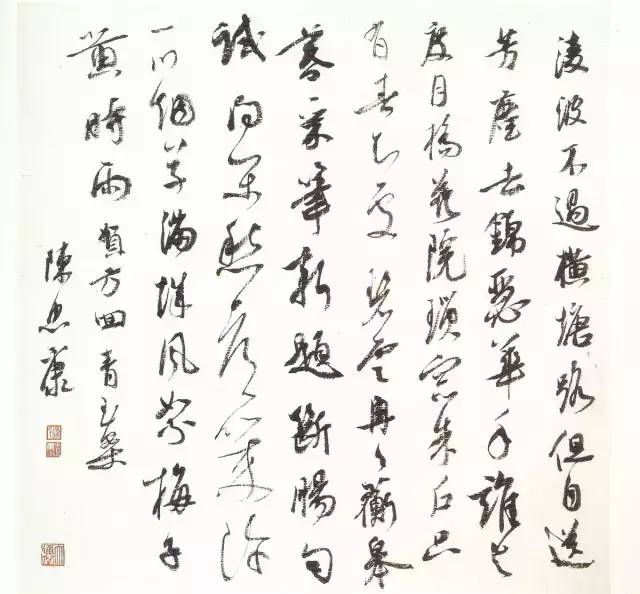 淩波不過橫塘路但目送
芳塵去錦瑟華年誰与
度月橋花院瑣窗朱戶只
有春知處碧雲冉冉蘅皋
暮彩筆新題斷腸句
試問閑愁都幾許
一川烟草滿城風絮梅子
黃時雨 賀方回青玉案
陳忠康